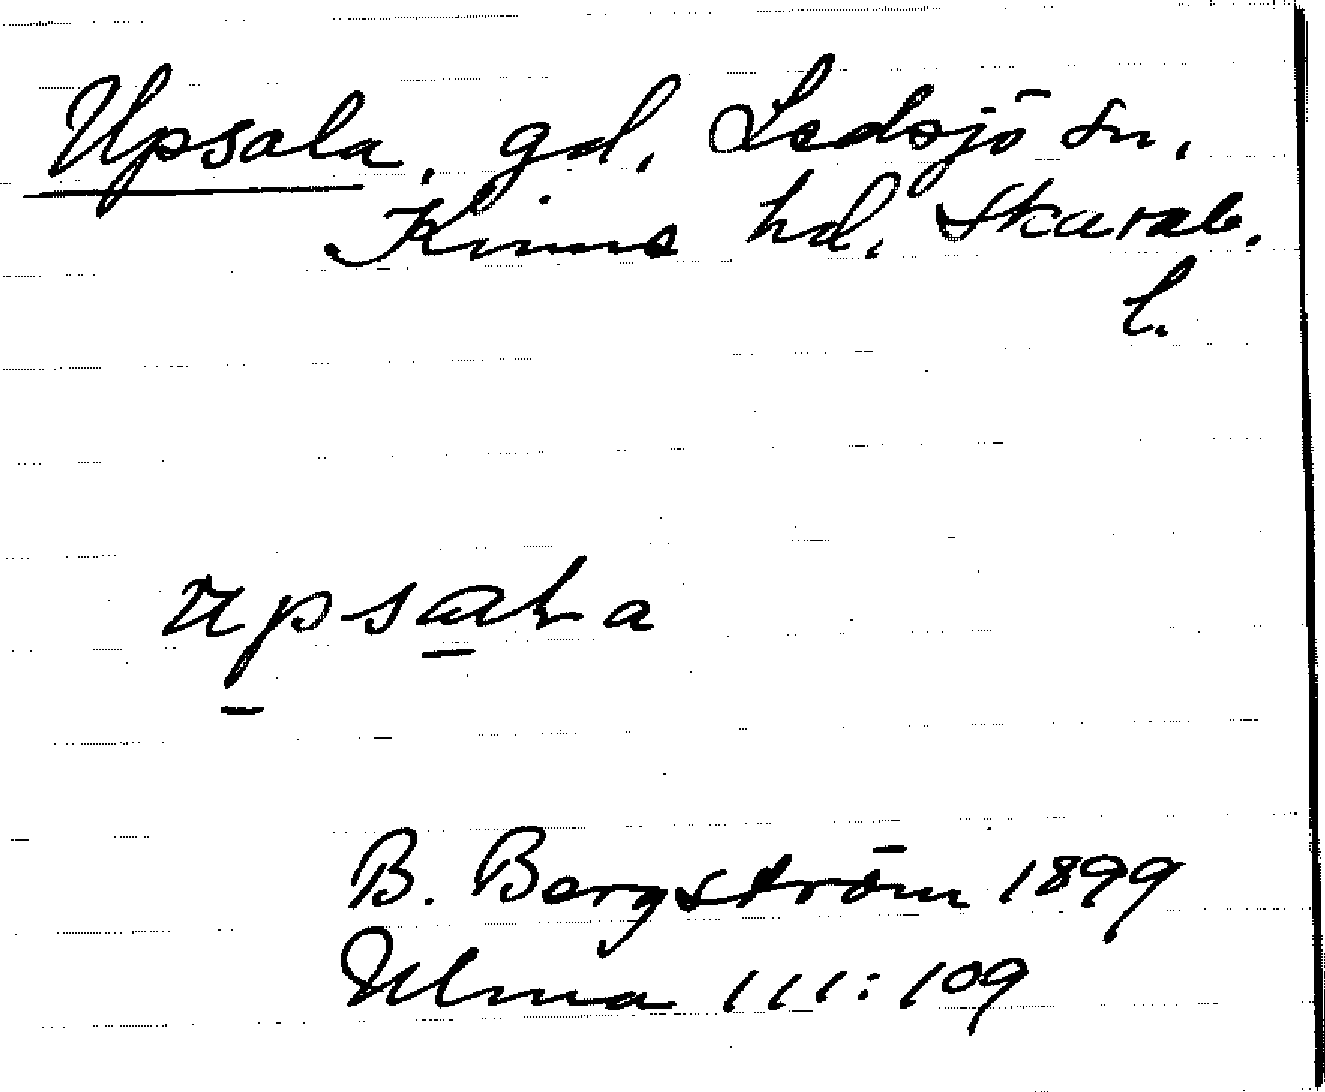 Upsala, gd, Ledsjö sn,
Kinne hd. Skarab.
l.
upsala
B. Bergström 1899
Ulma 111:109